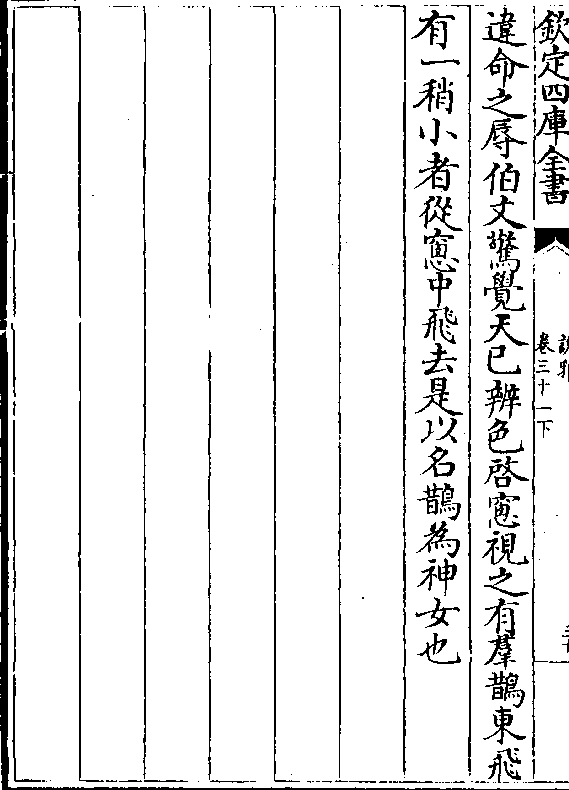 欽定四庫全書
卷三十一下
違命之辱伯丈驚覺天已辨色啓窻視之有羣鵲東飛
有一稍小者從窻中飛去是以名鵲為神女也